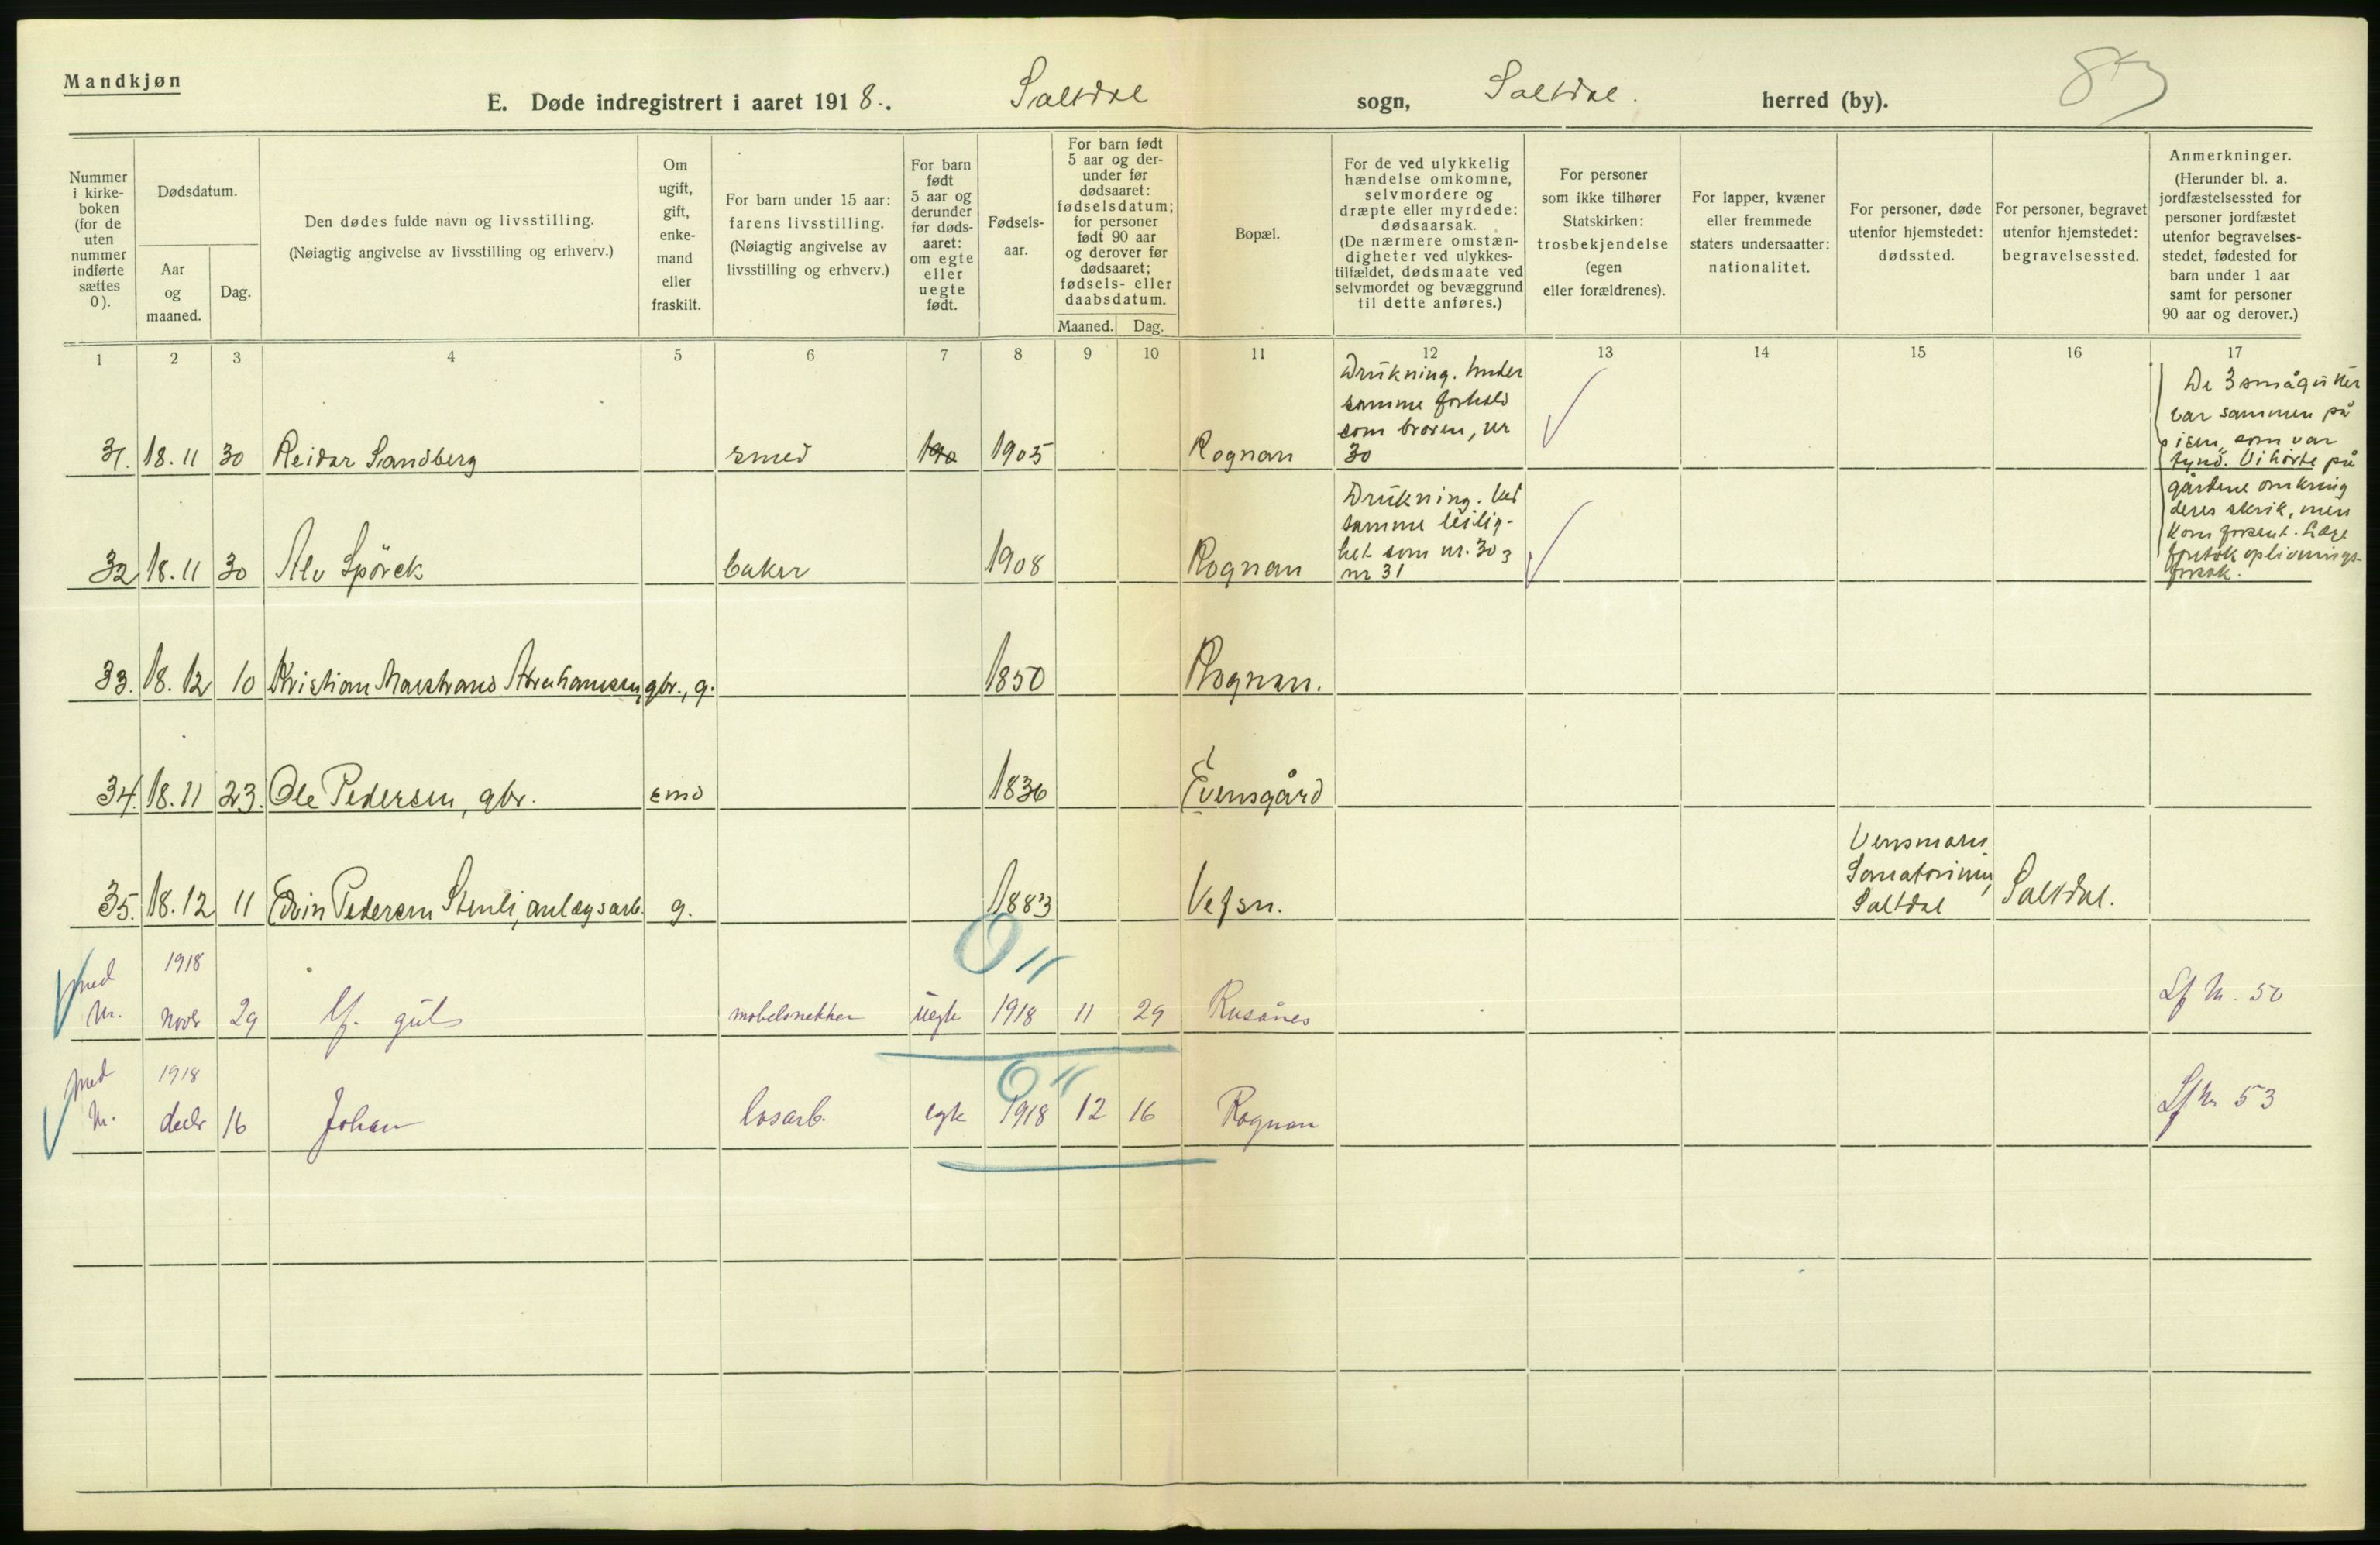 Mandkjøn
E. Døde indregistrert i aaret 1918. Saltdal sogn, Saltdal. herred (by).
Nummer i kirke-boken (for de uten nummer indførte sættes 0).
Dødsdatum.
Aar og maaned.
Dag.
Den dødes fulde navn og livsstilling.
(Nøiagtig angivelse av livsstilling og erhverv.)
Om ugift, gift, enke-mand eller fraskilt.
For barn under 15 aar: farens livsstilling.
(Nøiagtig angivelse av livsstilling og erhverv.)
For barn født 5 aar og derunder før døds-aaret: om egte eller uegte født.
Fødsels-aar.
For barn født 5 aar og der-under før dødsaaret: fødselsdatum; for personer født 90 aar og derover før dødsaaret; fødsels- eller daabsdatum.
Maaned. Dag.
Bopæl.
For de ved ulykkelig hændelse omkomne, selvmordere og dræpte eller myrdede: dødsaarsak.
(De nærmere omstæn-digheter ved ulykkes-tilfældet, dødsmaate ved selvmordet og bevæggrund til dette anføres.)
For personer som ikke tilhører Statskirken: trosbekjendelse (egen eller forældrenes).
For lapper, kvæner eller fremmede staters undersaatter: nationalitet.
For personer, døde utenfor hjemstedet: dødssted.
For personer, begravet utenfor hjemstedet: begravelsessted.
Anmerkninger.
(Herunder bl. a. jordfæstelsessted for personer jordfæstet utenfor begravelses-stedet, fødested for barn under 1 aar samt for personer 90 aar og derover.)
1 2 3 4 5 6 7 8 9 10 11 12 13 14 15 16 17
31. 18.11 30 Reidar Sandberg smed 190 1905 Rognan Drukning. Under samme forhold som broren, nr 30
De 3 smågutter
var sammen på
isen, som var
tynd. Vi hørte på
gårdene omkring
deres skrik, men
kom forsent. Læge
foretok oplivnings-
forsøk.
32 18.11 30 Alv Spörck baker 1908 Rognan Drukning. Ved samme leilig-het som nr. 30 & nr 31
33. 18.12 10 Kristian Marstrand Abrahamsen, gbr., g. 1850 Rognan.
34. 18.11 23. Ole Pedersen, gbr. emd 1836 Evensgård
35. 18.12 11 Edvin Pedersen Stenli, anlægsarb. g. 1883 Vefsn. Vensmoen Sanatorium, Saltdal Saltdal.
med Nr. 1918 novbr 29 Uf. gut møbelsnekker uegte 1918 11 29 Rusånes Lf Nr. 50
med Nr. 1918 decbr 16 Johan løsarb. egte 1918 12 16 Rognan Lf Nr 53